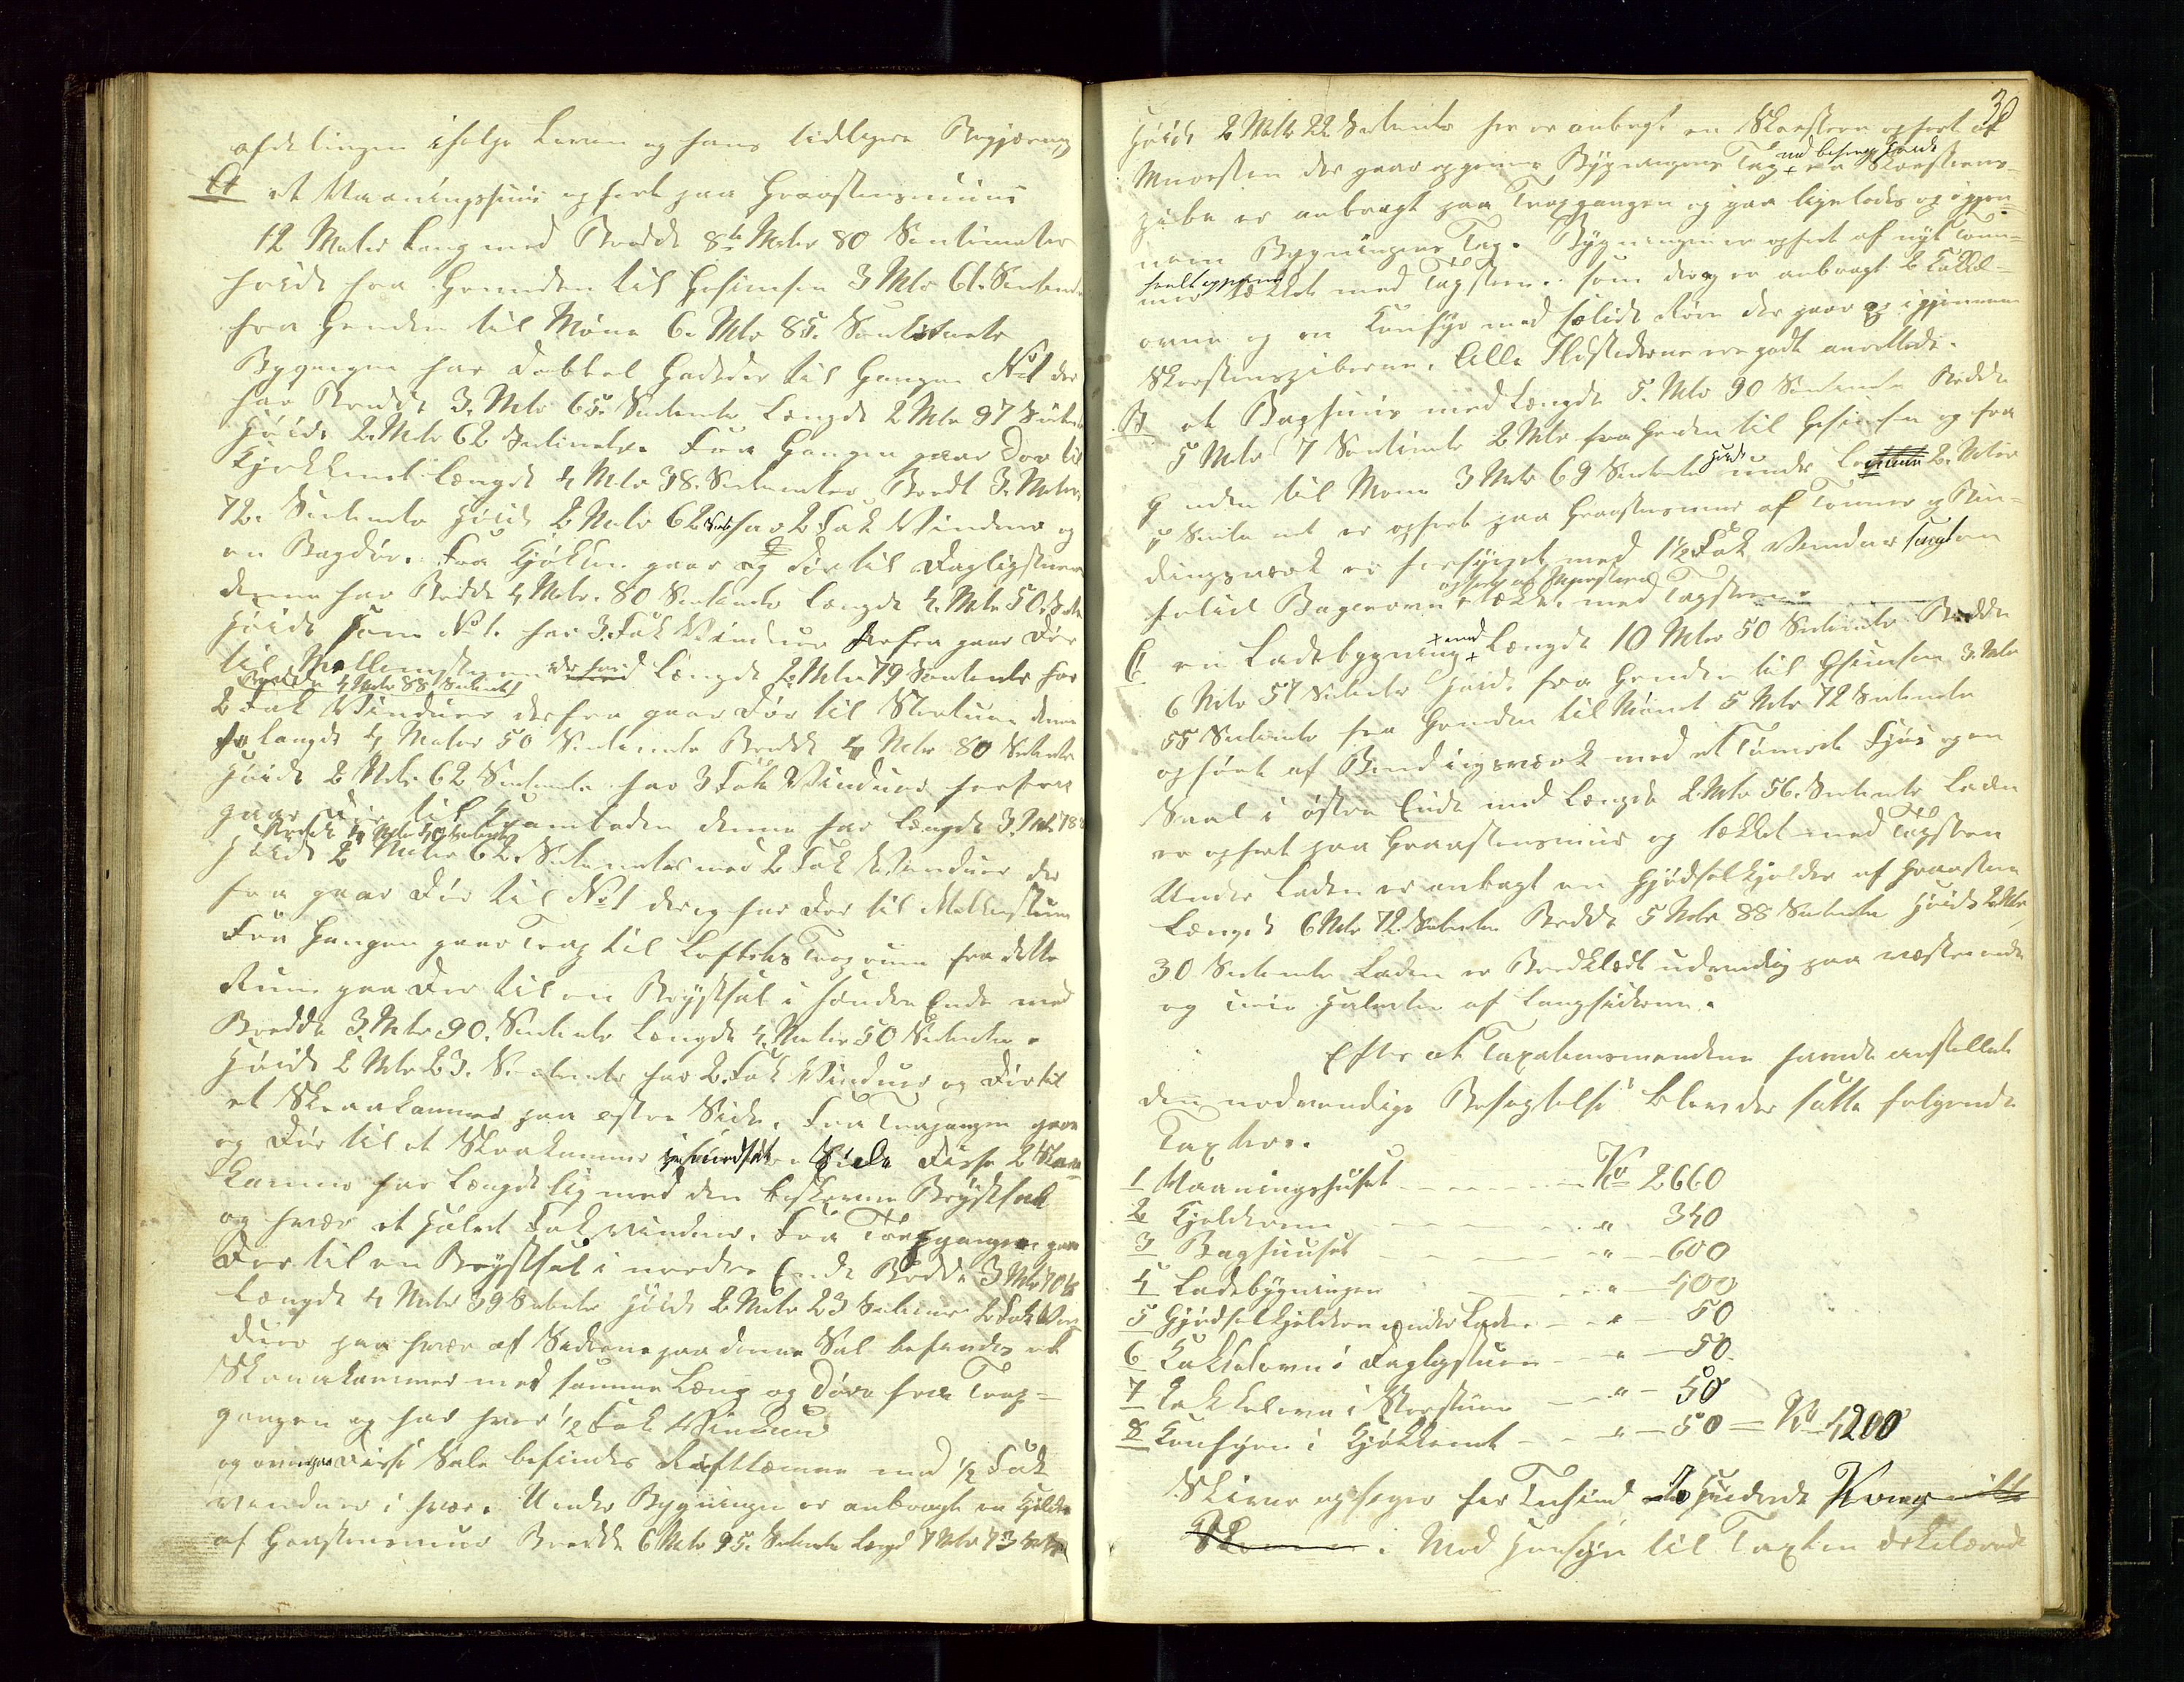 afdelingen ifølge Loven og hans tidligere Begjæring
A et Vaaningshuus opført paa Graastensmuur
12 Meter Lang med Bredde 8 Meter 80 Sentimeter
høide fra Grunden til Gesimsen 3 Mtr 61 Sentimtr
fra Grunden til Møne 6. Mtr 85. Sentimetr
Bygningen har dobbel Gadedør til Gangen No 1 der
har Bredde 3. Mtr 65 Sentimtr Længde 2 Mtr 97 Sentim
Høide 2. Mtr 62 Sentimetr. Fra Gangen gaar Dør til
Kjøkkenet Længde 4 Mtr 38. Sentimeter Bredde 3. Meter
72. Sentimtr Høide 2 Metr 62 Sent har 2 Fak Vinduer og
en Bagdør. Fra Kjøkken gaar og Dør til Dagligstuen
denne har Bredde 4 Mtr. 80 Sentimtr Længde 4. Mtr 50. Sentim
Høide som No 1. har 3. Fak Vinduer herfra gaar Dør
til Mellemstuen der har Længde 2. Mtr 79 Sentimtr har
Bredde 4 Mtr 88 Sentimtr
2 Fak Vinduer derfra gaar Dør til Storstuen denne
har Længde 4 Meter 50 Sentimtr Bredde 4 Mtr 80 Sentimtr
Høide 2 Mtr 62 Sentimtr har 3 Fak Vinduer herfra
gaar Dør til Kramboden denne har Længde 3. Mtr 78
Bredde 4 Mtr 40 Sentimtr
Høide 2 Meter 62. Sentimeter med 2 Fak Vinduer der
fra gaar Dør til No 1 der og har Dør til Mellemstuen
Fra Gangen gaar Trap til Loftets Traprum fra dette
Rum gaar Dør til en Brystsal i søndre Ende med
Bredde 3. Mtr 90. Sentimtr Længde 4. Meter 50 Sentimtr.
Høide 2 Mtr 23. Sentimtr har 2. Fak Vinduer og Dør til
et Skraakammer paa østre Side. Fra Trapgangen gaar
og Dør til et Skraakammer Side Disse 2 Skraa
kamre har Længde lig med den beskrevne Brystsal
og hver et halvt Fak vinduer. Fra Trapgangen gaar
Dør til en Brystsal i nordre Ende Bredde 3 Mtr 70
Længde 4 Meter 39 Sentimtr Høide 2 Mtr 23 Sentimtr 2 Fak Vin
duer paa hver af Siderne paa denne Sal befindes et
Skraakammer med samme Længde og Døre fra Trap-
gangen og har hver 1/2 Fak Vinduer
og over disse Sale befindes Loftlemme med 1/2 Fak
vinduer i hver. Under Bygningen er anbragt en Kjelder
af Graastensmuur Bredde 6 Mtr 95. Sentimtr Længd 7 Mtr 73 Sentim
30
Høide 2 Mtr 22 Sentimtr her er anbragt en Skorsten opført af
Muursten der gaar op gjennem Bygningens Tag + en Skorstens-
pibe er anbragt paa Trapgangen og gaar ligeledes op igjen-
nem Bygningens Tag. Bygningen er opført af nyt Tøm-
mer tækket med Tagsten. som der og er anbragt 2 Kakkel-
ovne og en Komfyr med solide Røre der gaar op igjennem
Skorstenspiberne. Alle Ildstederne ere godt anrettede.
B et Baghuus med Længde 5. Mtr 90 Sentimtr Bredde
5 Mtr 7 Sentimtr 2 Mtr fra Grunden til Gesimsen og fra
Grunden til Møne 3 Mtr 69 Sentimtr Høide under 2. Meter
er opført paa Graastensmur af Tømmer og Bin-
dingsværk er forsynet med 1 1/2 Fak Vinduer samt en
solid Bagerovn + tækket med Tagsten
opført af Muursten
C. en Ladebygning + med Længde 10 Mtr 50 Sentimtr Bredde
6 Mtr 57 Sentimtr Høide fra Grunden til Gesimsen 3. Mtr
55 Sentimtr fra Grunden til Mønet 5 Mtr 72 Sentimtr
opført af Bindingsværk med et Tømret Fjøs og en
Sval i østre Ende med Længde 2. Mtr 56. Sentimtr Laden
er opført paa Graastensmur og tækket med Tagsten
Under Laden er anbragt en Gjødselkjelder af Graasten
Længde 6 Mtr 72. Sentimtr Bredde 5 Mtr 88 Sentimtr Høide 2. Mtr
30 Sentimtr Laden er Bordklædt udvendig paa vestre ende
og Halvdelen af Langsiderne.
Efter at Taxationsmændene havde anstillet
den nødvendige Besigtelse blev der satte følgende
Taxter.
1 Vaaningshuset Kr 2660
2 Kjelderen " 340
3 Baghuuset " 600
4 Ladebygningen " 400
5 Gjødselkjelderen under Laden " 50
6 Kakkelovn i Dagligstuen " 50
7 Kakkelovn i Storstuen " 50
8 Komfyren i Kjøkkenet " 50 = Kr 4200
Skriver og siger fire Tusind To Hundrede Kroner
. Med Hensyn til Taxten deklarerede